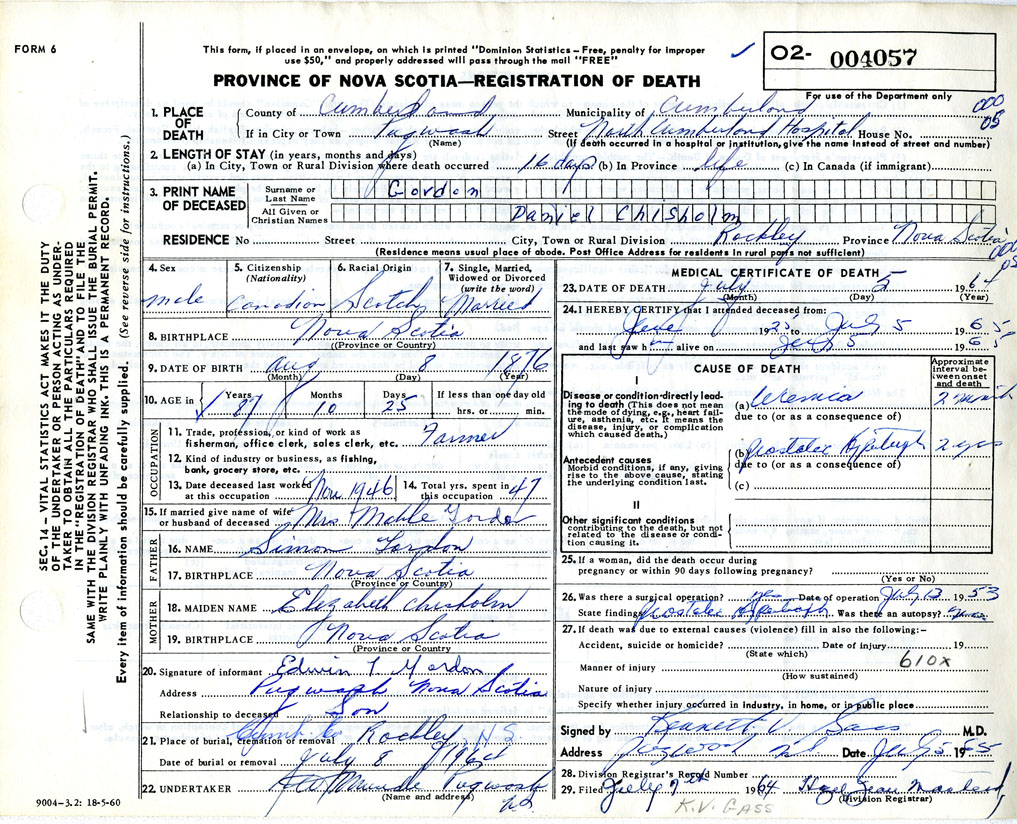 FORM 6
This form, if placed in an envelope, on which is printed "Dominion Statistics – Free, penalty for improper
use $50," and properly addressed will pass through the mail "FREE"
✓
O2- 004057
PROVINCE OF NOVA SCOTIA—REGISTRATION OF DEATH
For use of the Department only
1. PLACE OF DEATH
County of Cumberland Municipality of Cumberland 000
If in City or Town Pugwash Street North Cumberland Hospital House No. 05
(Name) (If death occurred in a hospital or institution, give the name instead of street and number)
2. LENGTH OF STAY (in years, months and days)
(a) In City, Town or Rural Division where death occurred 16 days (b) In Province life (c) In Canada (if immigrant)
3. PRINT NAME OF DECEASED
Surname or Last Name Gordon
All Given or Christian Names Daniel Chisholm
RESIDENCE No Street City, Town or Rural Division Rockley Province Nova Scotia
(Residence means usual place of abode. Post Office Address for residents in rural parts not sufficient)
000
05
4. Sex male
5. Citizenship (Nationality) Canadian
6. Racial Origin Scotch
7. Single, Married, Widowed or Divorced (write the word) Married
8. BIRTHPLACE Nova Scotia
(Province or Country)
9. DATE OF BIRTH Aug 8 1876
(Month) (Day) (Year)
10. AGE in Years 87 Months 10 Days 25 If less than one day old
hrs. or min.
OCCUPATION
11. Trade, profession, or kind of work as
fisherman, office clerk, sales clerk, etc. Farmer
12. Kind of industry or business, as fishing,
bank, grocery store, etc.
13. Date deceased last worked at this occupation Nov 1946
14. Total yrs. spent in this occupation 47
15. If married give name of wife
or husband of deceased Mrs Mable Gordon
FATHER
16. NAME Simon Gordon
17. BIRTHPLACE Nova Scotia
(Province or Country)
MOTHER
18. MAIDEN NAME Elizabeth Chisholm
19. BIRTHPLACE Nova Scotia
(Province or Country
20. Signature of informant Edwin Gordon
Address Pugwash Nova Scotia
Relationship to deceased Son
21. Place of burial, cremation or removal Cumb. Co Rockley N.S.
Date of burial or removal July 8 1964
22. UNDERTAKER Pugwash
(Name and address) N.S.
9004-3.2: 18-5-60
MEDICAL CERTIFICATE OF DEATH
23. DATE OF DEATH July 5 1964
(Month) (Day) (Year)
24. I HEREBY CERTIFY that I attended deceased from:
June 1923 to July 5 1965
and last saw h alive on July 5 1965
CAUSE OF DEATH
Approximate interval between onset and death
I
Disease or condition directly leading to death (This does not mean the mode of dying, e.g., heart failure, asthenia, etc. It means the disease, injury, or complication which caused death.)
(a) Uremia
due to (or as a consequence of)
Antecedent causes
Morbid conditions, if any, giving rise to the above cause, stating the underlying condition last.
(b) 2 yrs
due to (or as a consequence of)
(c)
II
Other significant conditions
contributing to the death, but not related to the disease or condition causing it.
25. If a woman, did the death occur during
pregnancy or within 90 days following pregnancy?
(Yes or No)
26. Was there a surgical operation? yes Date of operation July 13 1953
State findings Was there an autopsy?
27. If death was due to external causes (violence) fill in also the following:–
Accident, suicide or homicide? Date of injury 19
(State which)
610X
Manner of injury
(How sustained)
Nature of injury
Specify whether injury occurred in industry, in home, or in public place
Signed by Kennett V. Gass M.D.
Address Pugwash N S Date July 5 1965
28. Division Registrar's Record Number
29. Filed July 7th 1964 Hazel Jean
(Division Registrar)
K.V. GASS
SEC. 14 – VITAL STATISTICS ACT MAKES IT THE DUTY
OF THE UNDERTAKER OR PERSON ACTING AS UNDER-
TAKER TO OBTAIN ALL THE PARTICULARS REQUIRED
IN THE "REGISTRATION OF DEATH" AND TO FILE THE
SAME WITH THE DIVISION REGISTRAR WHO SHALL ISSUE THE BURIAL PERMIT.
WRITE PLAINLY WITH UNFADING INK. THIS IS A PERMANENT RECORD.
Every item of information should be carefully supplied. (See reverse side for instructions.)